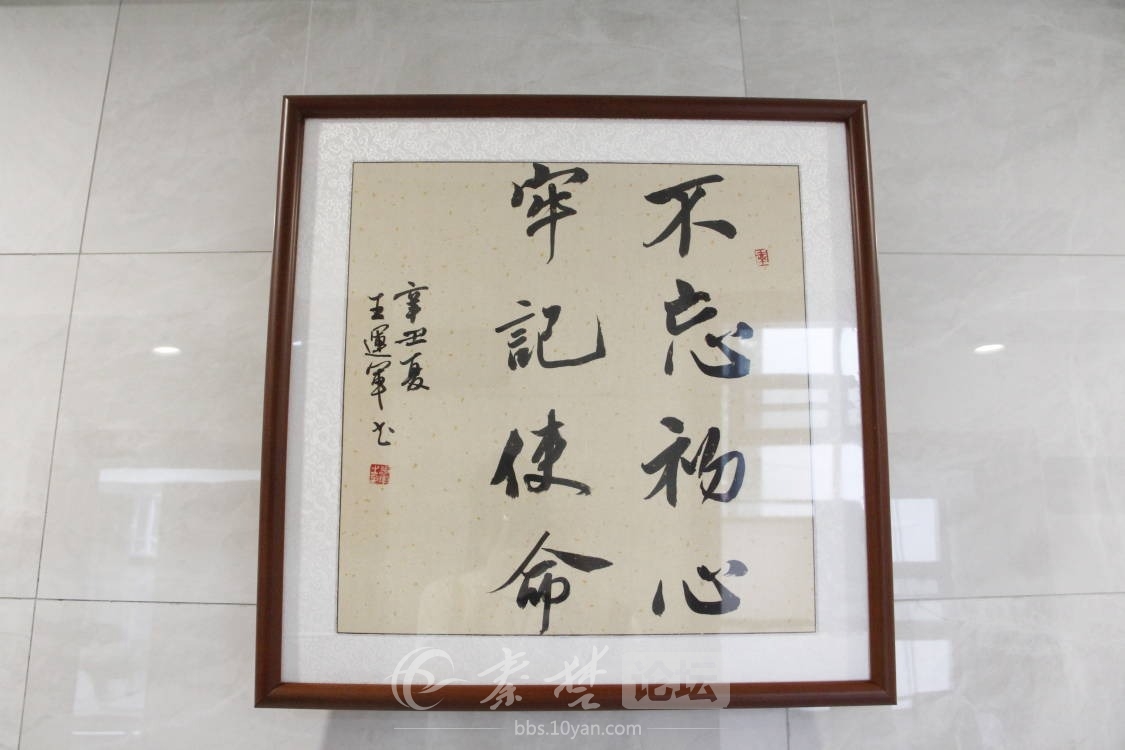 不忘初心
牢記使命
辛丑夏
王運軍书
秦楚论坛
bbs.10yan.com